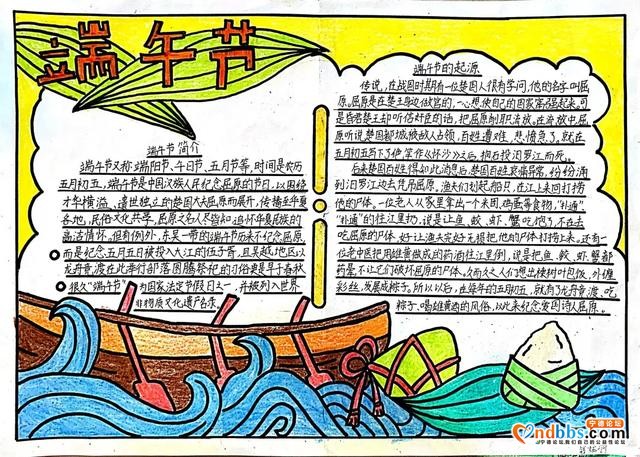 端午节
端午节 简介
端午节又称端阳节、午日节、五月节等，时间是农历
五月初五，端午节是中国汉族人民纪念屈原的节日，以围绕
才华横溢、遗世独立的楚国大夫屈原而展开，传播至华夏
各地，民俗文化共享，屈原之名人尽皆知，追怀华夏民族的
高洁情怀。但有例外，东吴一带的端午节历来不纪念屈原，
而是纪念五月五日被投入大江的伍子胥，且吴越地区以
龙舟竞渡在此举行部落图腾祭祀的习俗更是早于春秋
很久"端午节"为国家法定节假日之一，并被列入世界
非物质文化遗产名录
端午节的起源
传说，在战国时期有一位楚国人很有学问，他的名字叫屈
原。屈原是在楚王身边做官的，一心想使自己的国家富强起来。可
是昏君楚王却听信奸臣的话，把屈原削职流放。在流放中屈
原听说楚国都城被敌人占领，百姓遭难，悲愤急了。就在
五月初五写下了绝笔作《怀沙》之后，抱石投汨罗江而死。
后来楚国百姓得知此消息后，楚国百姓哀痛异常，纷纷涌
到汨罗江边去凭吊屈原。渔夫们划起船只，在江上来回打捞
他的尸体。一位老人从家里拿出一个米团、鸡蛋等食物，"扑通"、
"扑通"的往江里扔，说是让鱼、蛟、虾、蟹吃饱了，不在去
吃屈原的尸体，好让渔夫完好无损把他的尸体打捞上来。还有一
位老中医把用雄黄做成的药酒往江里倒，说是把鱼、蛟、虾、蟹都
药晕，不让它们破坏屈原的尸体。久而久之人们想出楝树叶包饭，外缠
彩丝，发展成粽子。所以以后，在每年的五月初五，就有了龙舟竞渡、吃
粽子、喝雄黄酒的风俗，以此来纪念爱国诗人屈原。
宁德论坛
ndbbs.com